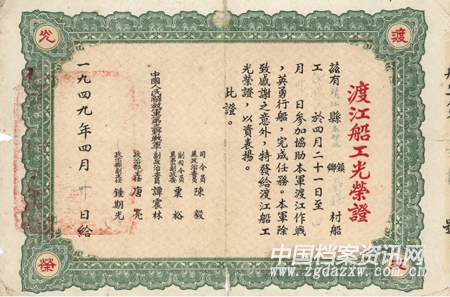 渡江船工光榮證
茲有 縣 鎮鄉 村船
工 於四月二十一日至
月 日參加協助本軍渡江作戰
,英勇行船,完成任務。本軍除
致感謝之意外,特發給渡江船工
光榮證,以資表揚。
此證。
司令員兼政治委員 陳毅
副司令員 粟裕
副政治委員 譚震林
政治部主任 唐亮
政治部副主任 鍾期光
一九四九年四月 日給
光
渡
榮
中国档案资讯网
www.zgdazxw.com.cn